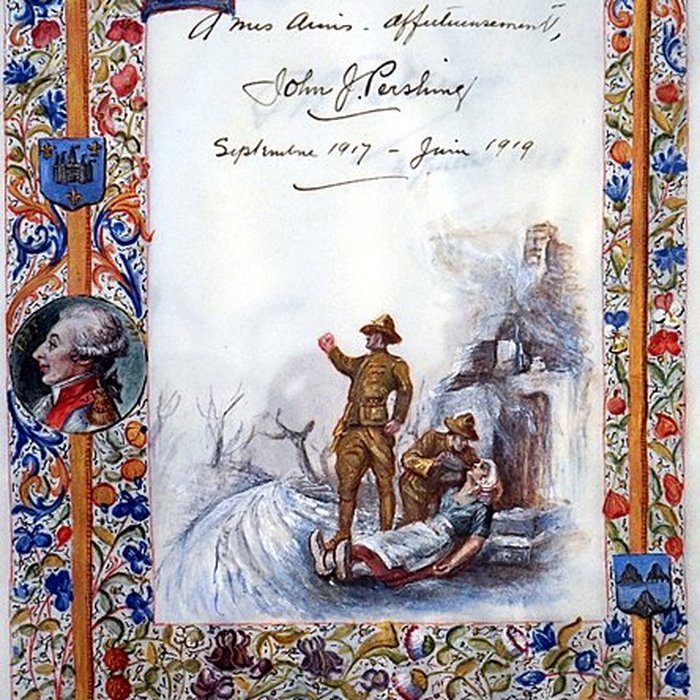 A mes Amis - affectueusement,
John J. Pershing
Septembre 1917 - Juin 1919